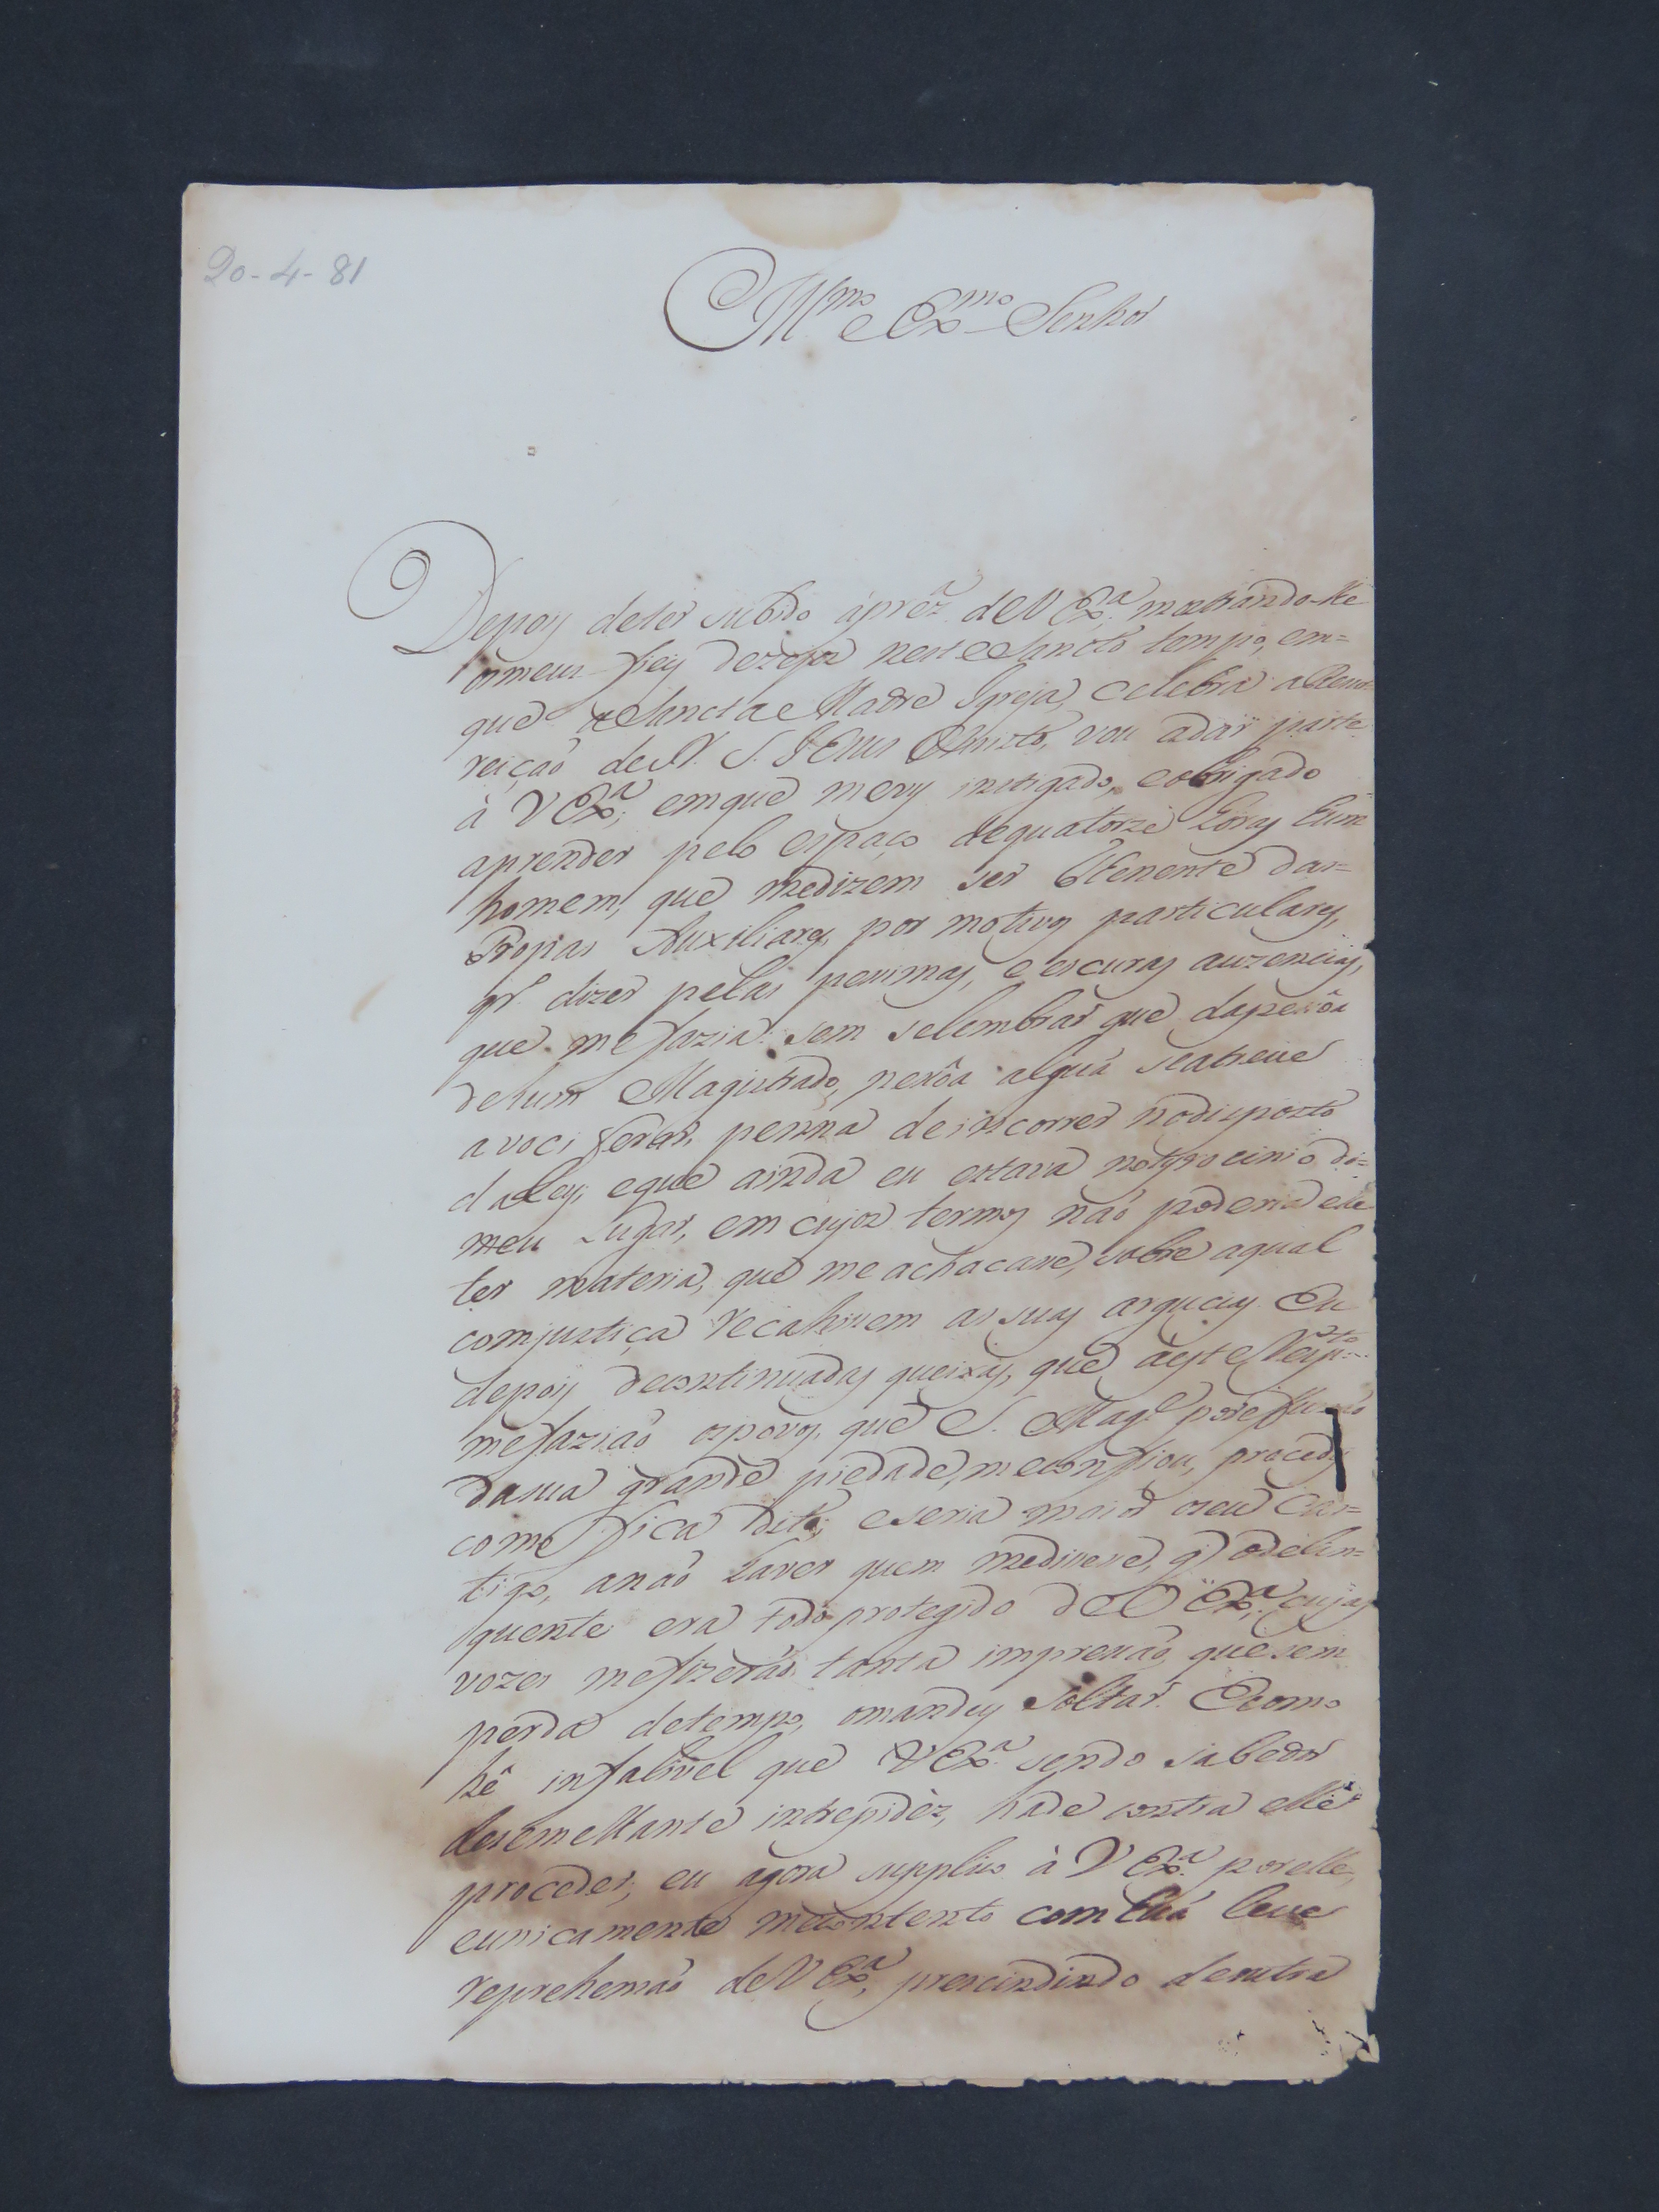 20-4-81
Illmo e Exmo Senhor
Depoys deter subido ápreza. deV Exa. mostrando-lhe
osmeus fieys dezejos nesteSancto tempo, em=
que aSancta Madre Igreja, celebra aRessu-
reiçaõ deN. S. JEsus Christo, vou adar parte
à VExa, emque mevy instigado, eobrigado
aprender pelo espaço dequatorze horas hum
homem, que medizem ser Thenente das=
Tropas Auxiliares, por motivos particulares,
qr. dizer pelas pessimas, e escuras auzencias,
que mefazia: sem selembrar que dapessôa
dehum Magistrado, pessôa algúa seatreve
avociferar, penna deincorrer nodisposto
daLey; eque ainda eu estava notyrocinio do=
meu Lugar, em cujos termos naõ poderia elle
ter materia, que meachacasse, sobre aqual
comjustiça recahissem as suas arguciaz. Eu
depoys decontinuadas queixas, que áeste Respto.
mefaziaõ ospovos, que S. Mage. por effuzaõ
dasua grande piedade, meconfiou, procedy
como fica dito; eseria maior oseu Cas=
tigo, anaõ haver quem medissesse, q odelin=
quente era todo protegido deV Exa; cujas
vozes mefizeraõ tanta impressaõ, quesem
perda detempo, omandey soltar. Ecomo
hê infalivel que VExa. sendo sabedor
desemelhante intrepidèz, hade contra elle
proceder; eu agora supplico à V Exa. porelle,
eunicamente mecontento com húa leve
reprehensaõ deV Exa, prescindindo deoutra